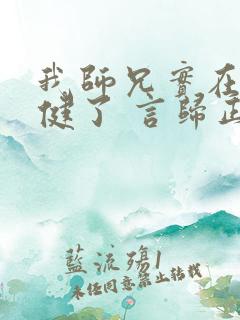 我師兄實在
健了 言歸正
藍流殤1
未任同意禁止轉載